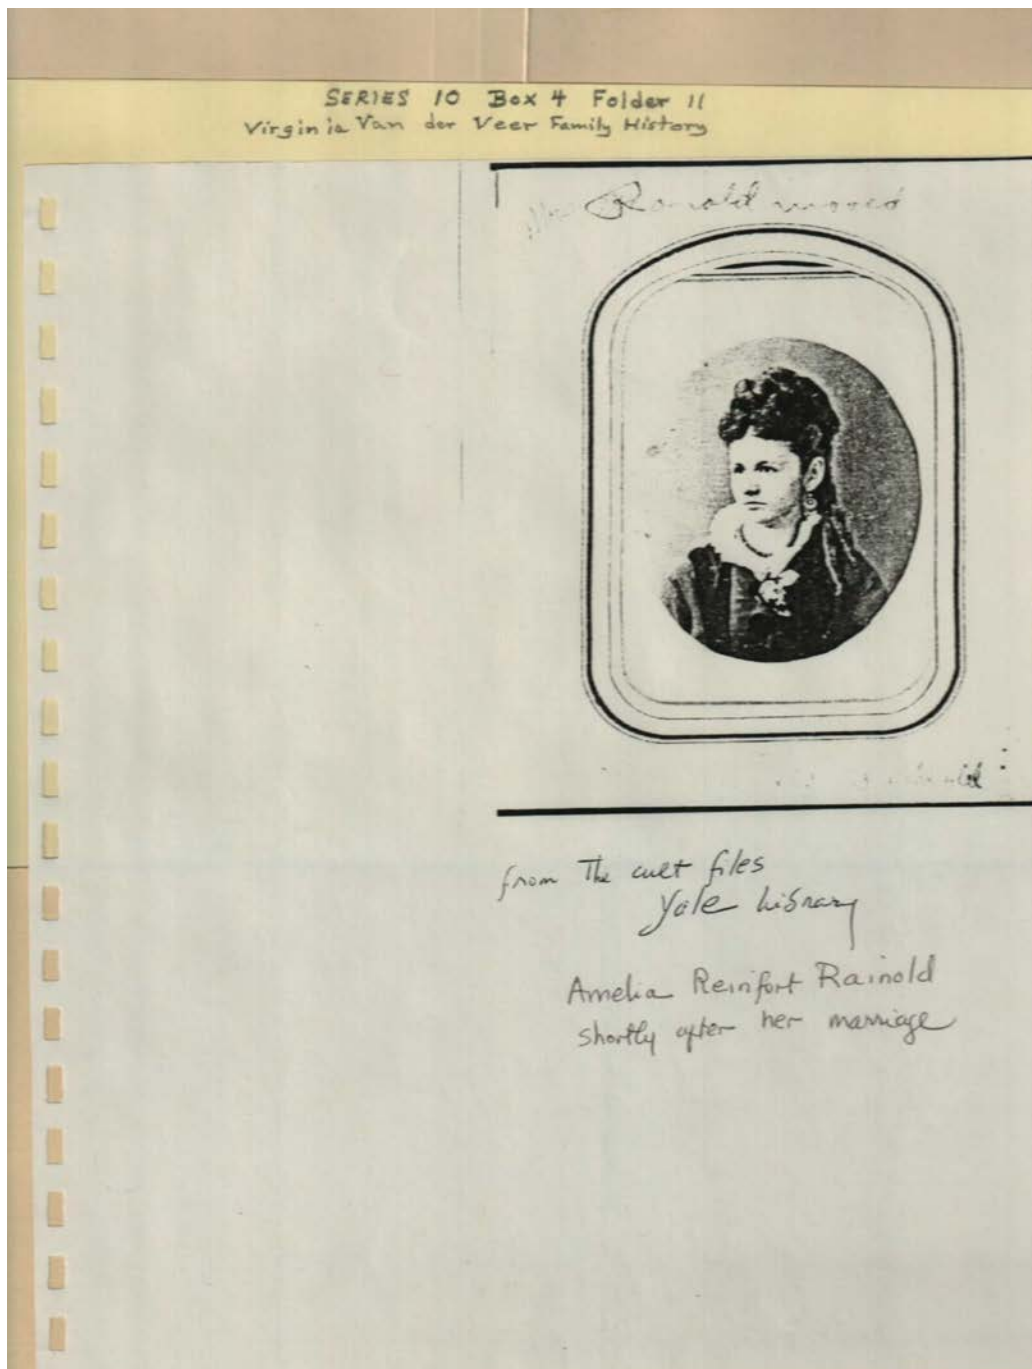 SERIES 10 Box 4 Folder 11
Virginia Van der Veer Family History
from The cult files
Yale Library
Amelia Reinifort Rainold
shortly after her marriage